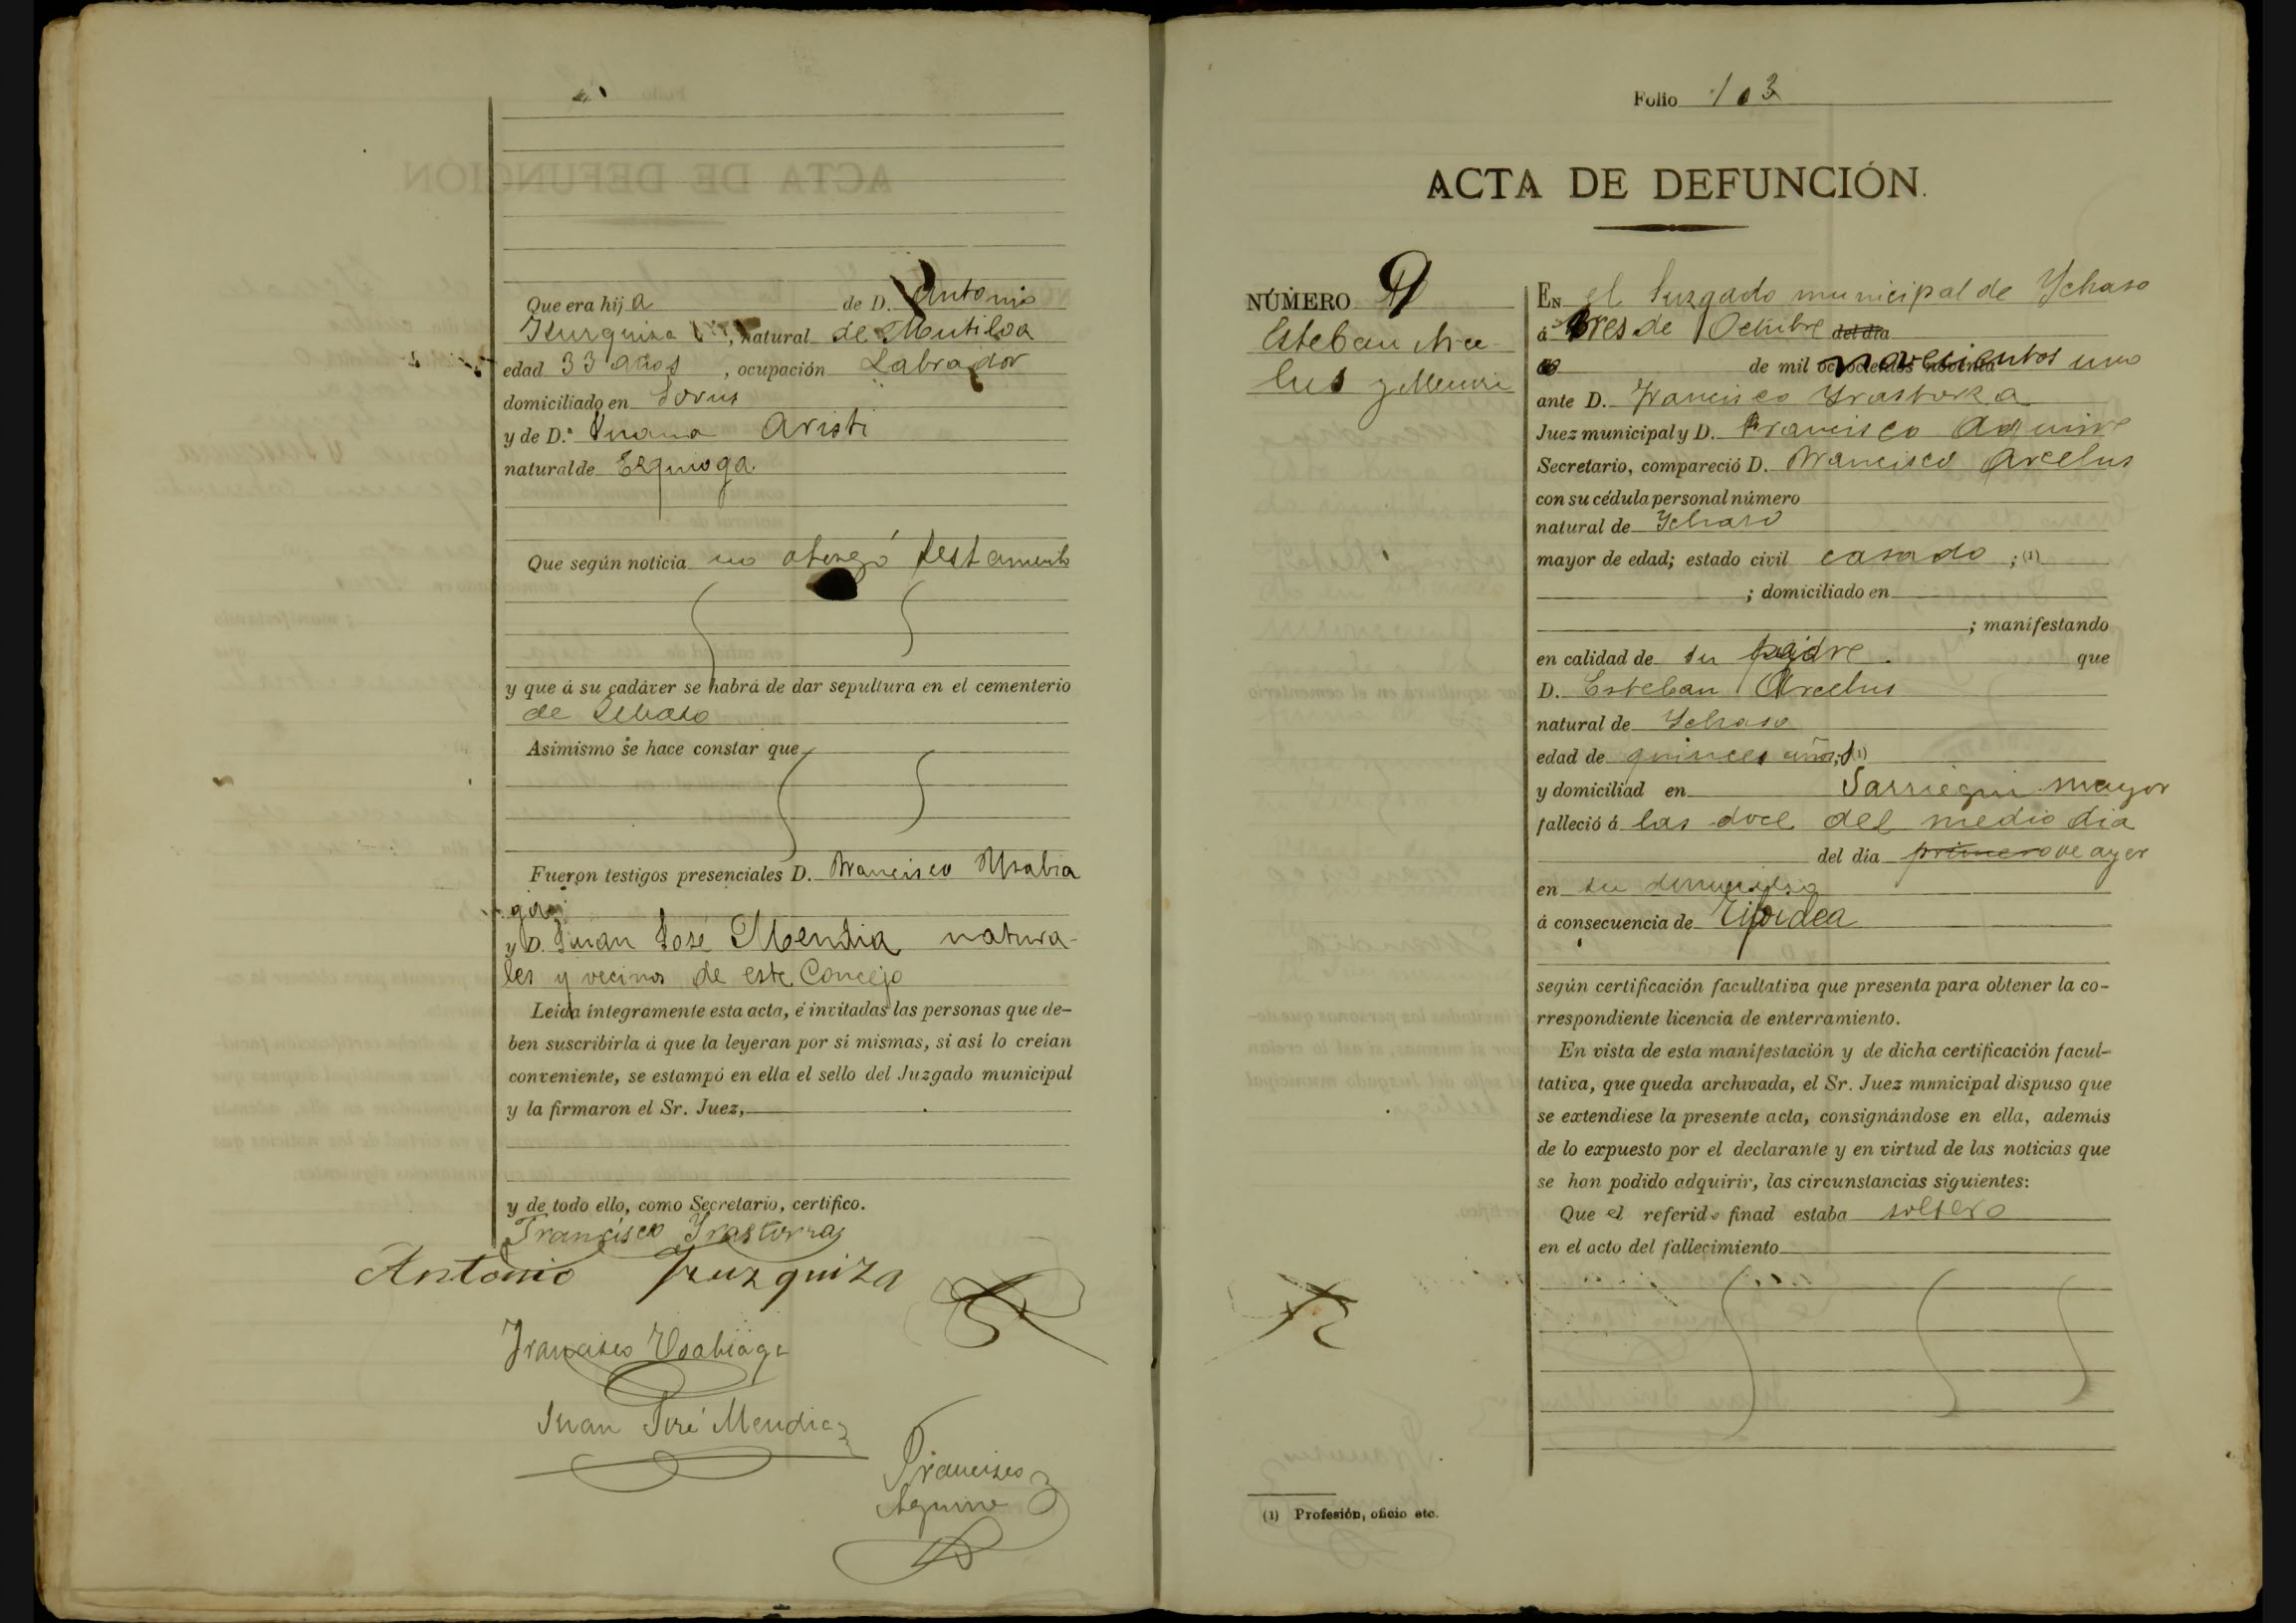 Que era hija de D. Antonio
Iturquiza, natural de Mutiloa
edad 33 años, ocupación Labrador
domiciliado en
y de D.ª Juana Aristi
natural de Ezquioga
Que según noticia no otorgó testamento
y que á su cadáver se habrá de dar sepultura en el cementerio
de Ichaso
Asimismo se hace constar que
Fueron testigos presenciales D. Francisco Usabia
ga
y D. Juan José Mendia natura-
les y vecinos de este Concejo
Leída íntegramente esta acta, é invitadas las personas que de-
ben suscribirla á que la leyeran por sí mismas, si así lo creían
conveniente, se estampó en ella el sello del Juzgado municipal
y la firmaron el Sr. Juez,
y de todo ello, como Secretario, certifico.
Francisco Yrastorza
Antonio Yzuzquiza
Francisco Usabiaga
Juan José Mendia
Francisco
Aguirre
Folio 103
ACTA DE DEFUNCIÓN.
NÚMERO 9
Esteban Arce-
lus y Mendi
EN el Juzgado municipal de Ychaso
á tres de Octubre del día
de mil ochocientos noventa novecientos uno
ante D. Francisco Yrastorza
Juez municipal y D. Francisco Aguirre
Secretario, compareció D. Francisco Arcelus
con su cédula personal número
natural de Ychaso
mayor de edad; estado civil casado ; (1)
; domiciliado en
; manifestando
en calidad de su padre que
D. Esteban Arcelus
natural de Ychaso
edad de quince años; (1)
y domiciliad en Sarriegui mayor
falleció á las doce del medio dia
del día primero de ayer
en su domicilio
á consecuencia de Tifoidea
según certificación facultativa que presenta para obtener la co-
rrespondiente licencia de enterramiento.
En vista de esta manifestación y de dicha certificación facul-
tativa, que queda archivada, el Sr. Juez municipal dispuso que
se extendiese la presente acta, consignándose en ella, además
de lo expuesto por el declarante y en virtud de las noticias que
se han podido adquirir, las circunstancias siguientes:
Que el referido finad estaba soltero
en el acto del fallecimiento
(1) Profesión, oficio etc.